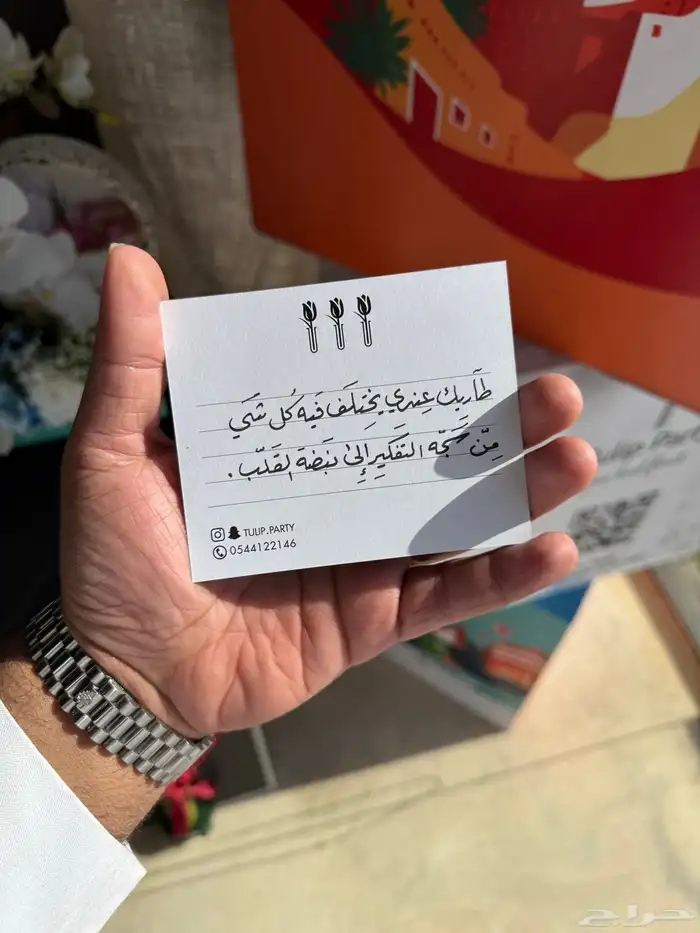 طَآرِيك عِندي يختِلَف فَيه كُل شَي
مِنّ سَجّه التَفكِير إِلىٰ نبَضة القَلّب .
TULIP.PARTY
0544122146
Tulip.Part
حراج